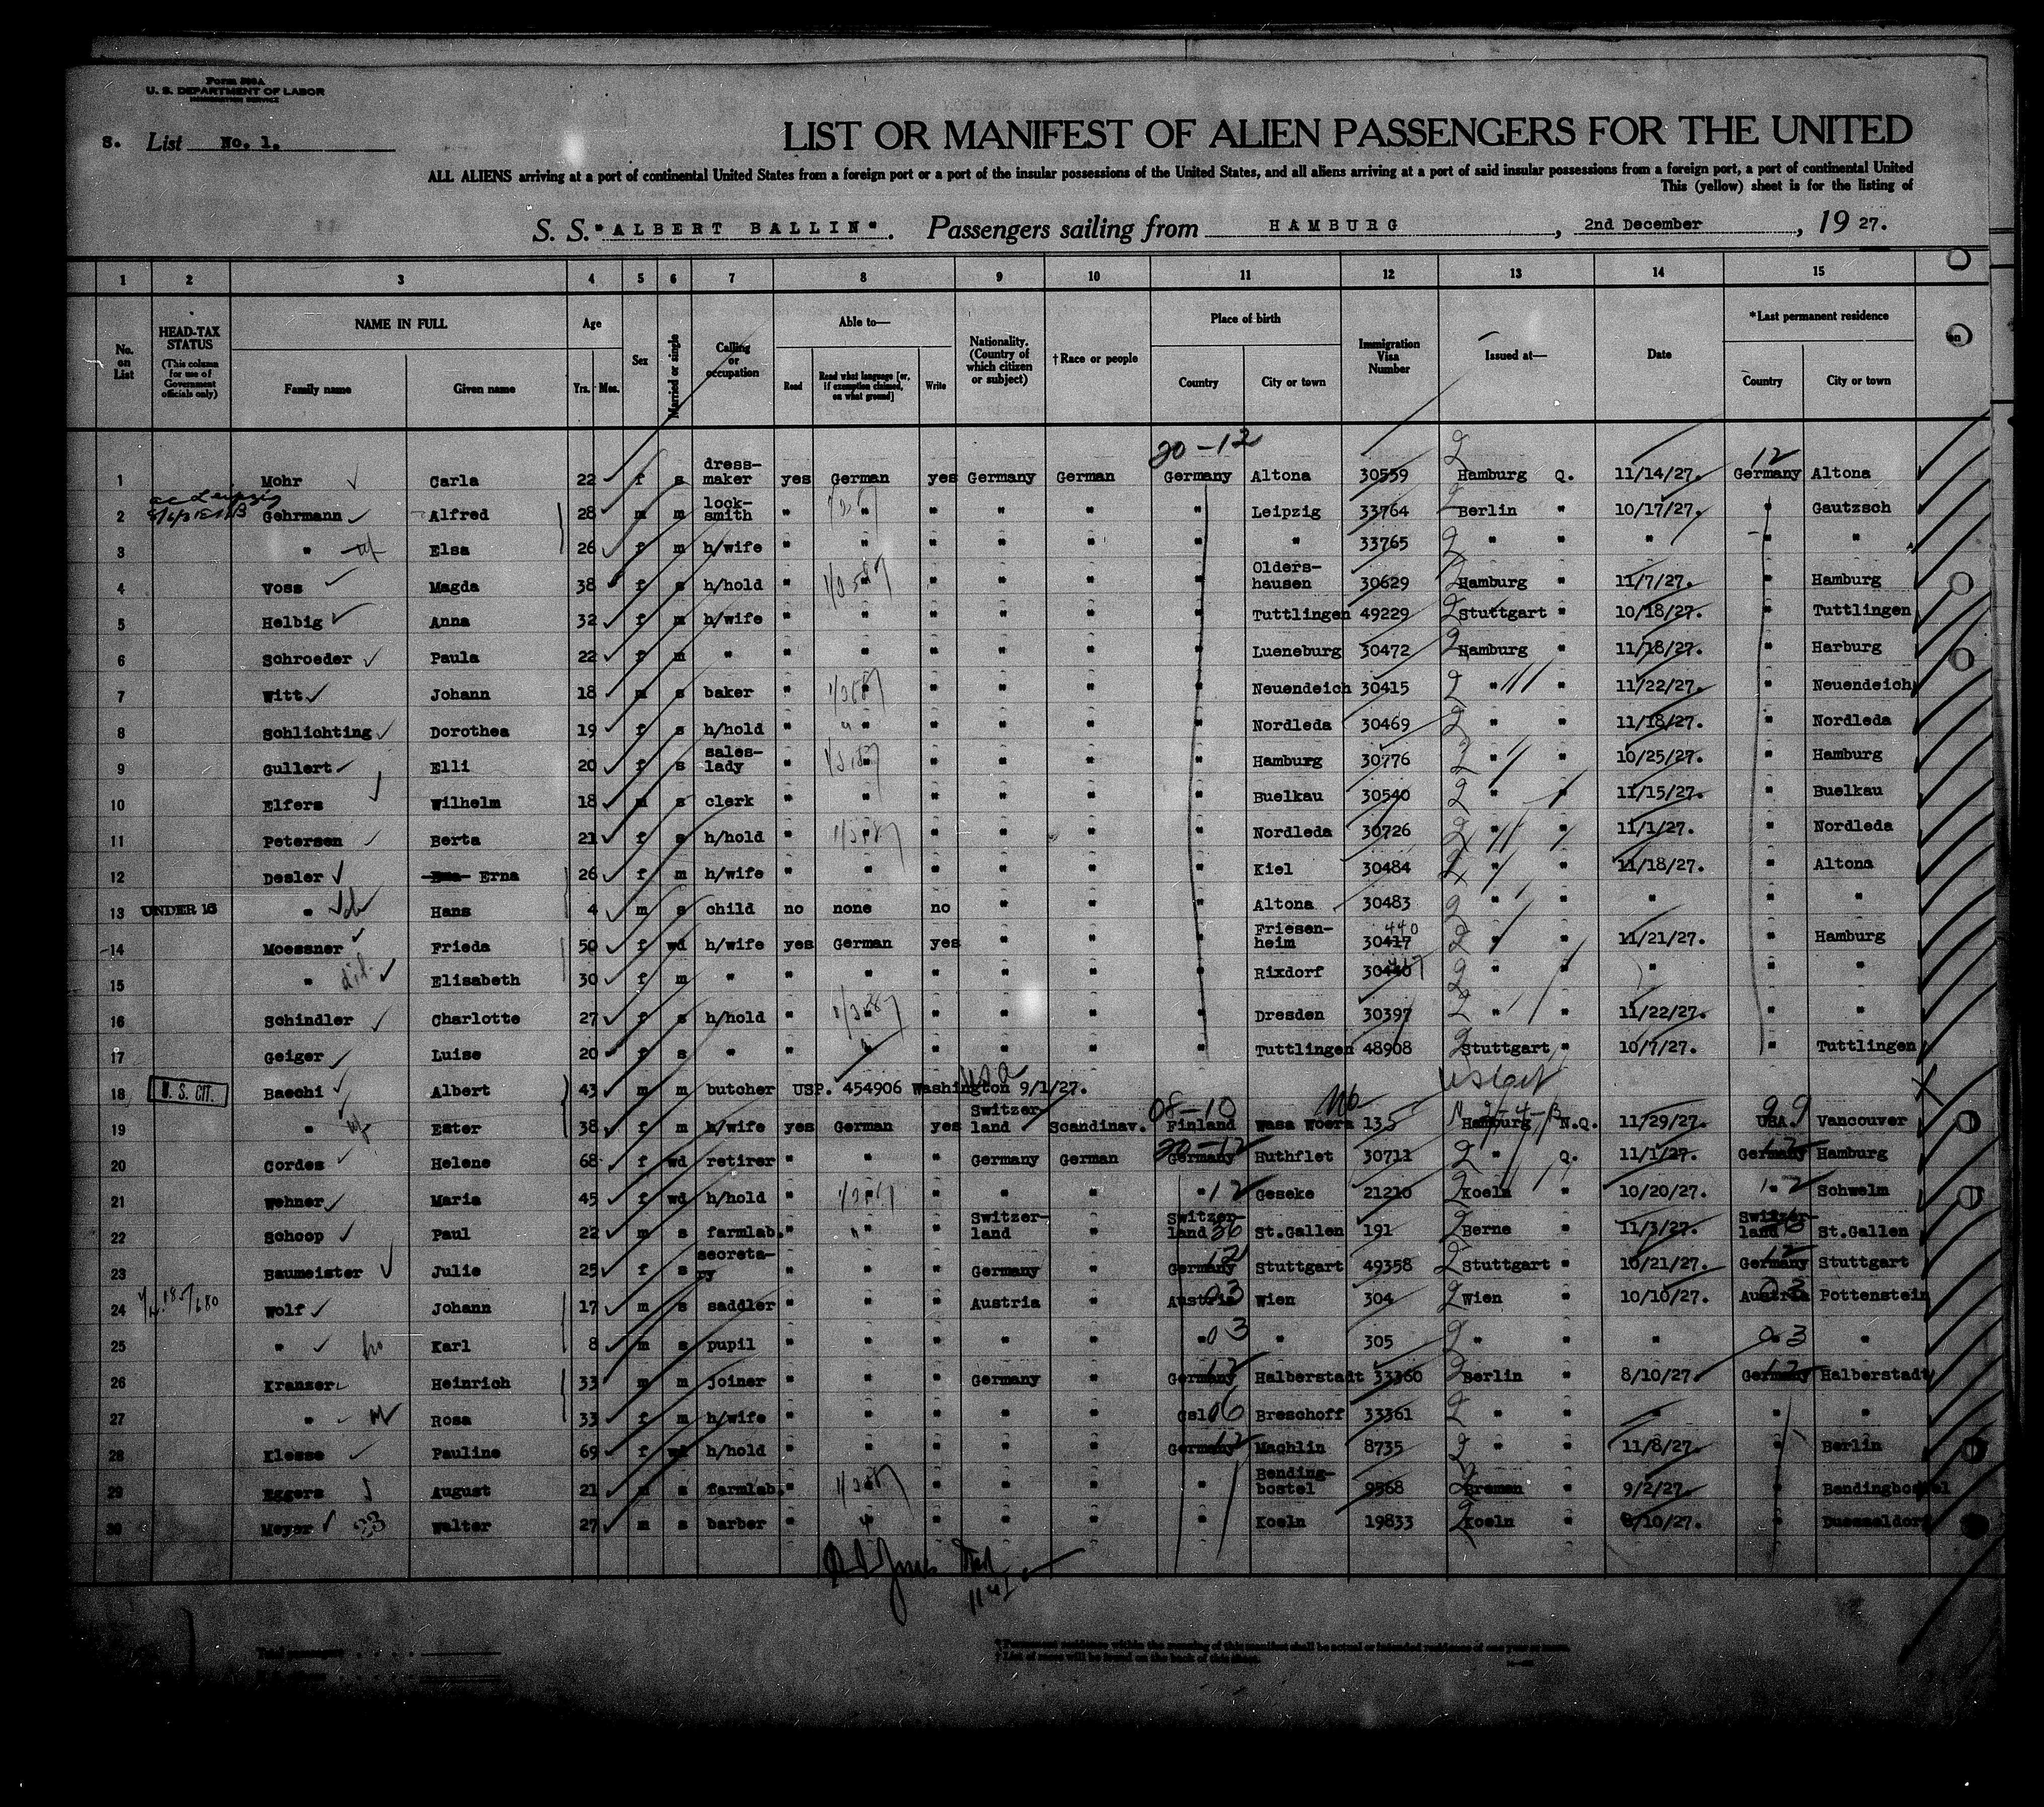 Form 500A
U. S. DEPARTMENT OF LABOR
IMMIGRATION SERVICE
S. List No. 1.
LIST OR MANIFEST OF ALIEN PASSENGERS FOR THE UNITED
ALL ALIENS arriving at a port of continental United States from a foreign port or a port of the insular possessions of the United States, and all aliens arriving at a port of said insular possessions from a foreign port, a port of continental United
This (yellow) sheet is for the listing of
S. S. "ALBERT BALLIN". Passengers sailing from HAMBURG, 2nd December, 19 27.
1 2 3 4 5 6 7 8 9 10 11 12 13 14 15
No. on List
HEAD-TAX STATUS (This column for use of Government officials only)
NAME IN FULL
Family name Given name
Age
Yrs. Mos.
Sex
Married or single
Calling or occupation
Able to—
Read Read what language [or, if exemption claimed, on what ground] Write
Nationality. (Country of which citizen or subject)
†Race or people
Place of birth
Country City or town
Immigration Visa Number
Issued at—
Date
*Last permanent residence
Country City or town
20-12 12
1 Mohr Carla 22 f s dress-maker yes German yes Germany German Germany Altona 30559 Hamburg Q. 11/14/27. Germany Altona
2 Gehrmann Alfred 28 m m lock-smith " " " " " " Leipzig 33764 Berlin " 10/17/27. " Gautzsch
3 " wf Elsa 26 f m h/wife " " " " " " " 33765 " " " " "
4 Voss Magda 38 f s h/hold " " " " " " Olders-hausen 30629 Hamburg " 11/7/27. " Hamburg
5 Helbig Anna 32 f m h/wife " " " " " " Tuttlingen 49229 Stuttgart " 10/18/27. " Tuttlingen
6 Schroeder Paula 22 f m " " " " " " " Lueneburg 30472 Hamburg " 11/18/27. " Harburg
7 Witt Johann 18 m s baker " " " " " " Neuendeich 30415 " " 11/22/27. " Neuendeich
8 Schlichting Dorothea 19 f s h/hold " " " " " " Nordleda 30469 " " 11/18/27. " Nordleda
9 Gullert Elli 20 f s sales-lady " " " " " " Hamburg 30776 " " 10/25/27. " Hamburg
10 Elfers Wilhelm 18 m s clerk " " " " " " Buelkau 30540 " " 11/15/27. " Buelkau
11 Petersen Berta 21 f s h/hold " " " " " " Nordleda 30726 " " 11/1/27. " Nordleda
12 Desler Erna 26 f m h/wife " " " " " " Kiel 30484 " " 11/18/27. " Altona
13 UNDER 16 " Hans 4 m s child no none no " " " Altona 30483 " " " " "
14 Moessner Frieda 50 f wd h/wife yes German yes " " " Friesen-heim 30417 440 " " 11/21/27. " Hamburg
15 " Elisabeth 30 f m " " " " " " " Rixdorf 30440 417 " " " " "
16 Schindler Charlotte 27 f s h/hold " " " " " " Dresden 30397 " " 11/22/27. " "
17 Geiger Luise 20 f s " " " " " " " Tuttlingen 48908 Stuttgart " 10/7/27. " Tuttlingen
18 U. S. CIT. Baechi Albert 43 m m butcher USP. 454906 Washington 9/1/27. usa
19 " wf Ester 38 f m h/wife yes German yes Switzer-land Scandinav. 08-10 Finland Wasa Woera 135 Hamburg N.Q. 11/29/27. USA. 99 Vancouver
20 Cordes Helene 68 f wd retirer " " " Germany German 20-12 Germany Huthflet 30711 " Q. 11/1/27. Germany 12 Hamburg
21 Wehner Maria 45 f wd h/hold " " " " " " 12 Geseke 21210 Koeln " 10/20/27. " 12 Schwelm
22 Schoop Paul 22 m s farmlab. " " " Switzer-land " Switzer-land 36 St.Gallen 191 Berne " 11/3/27. Switzer-land St.Gallen
23 Baumeister Julie 25 f s secreta-ry " " " Germany " Germany 12 Stuttgart 49358 Stuttgart " 10/21/27. Germany 12 Stuttgart
24 Wolf Johann 17 m s saddler " " " Austria " Austria 03 Wien 304 Wien " 10/10/27. Austria 03 Pottenstein
25 " Karl 8 m s pupil " " " " " " 03 " 305 " " " " 03 "
26 Kranser Heinrich 33 m m joiner " " " Germany " Germany 12 Halberstadt 33360 Berlin " 8/10/27. Germany 12 Halberstadt
27 " Rosa 33 f m h/wife " " " " " Csl. 06 Breschoff 33361 " " " " "
28 Klesse Pauline 69 f wd h/hold " " " " " Germany 12 Machlin 8735 " " 11/8/27. " Berlin
29 Eggers August 21 m s farmlab. " " " " " " Bending-bostel 9568 Bremen " 9/2/27. " Bendingbostel
30 Meyer 23 Walter 27 m s barber " " " " " " Koeln 19833 Koeln " 8/10/27. " Duesseldorf
Total passengers
* Permanent residence within the meaning of this manifest shall be actual or intended residence of one year or more.
† List of races will be found on the back of this sheet.